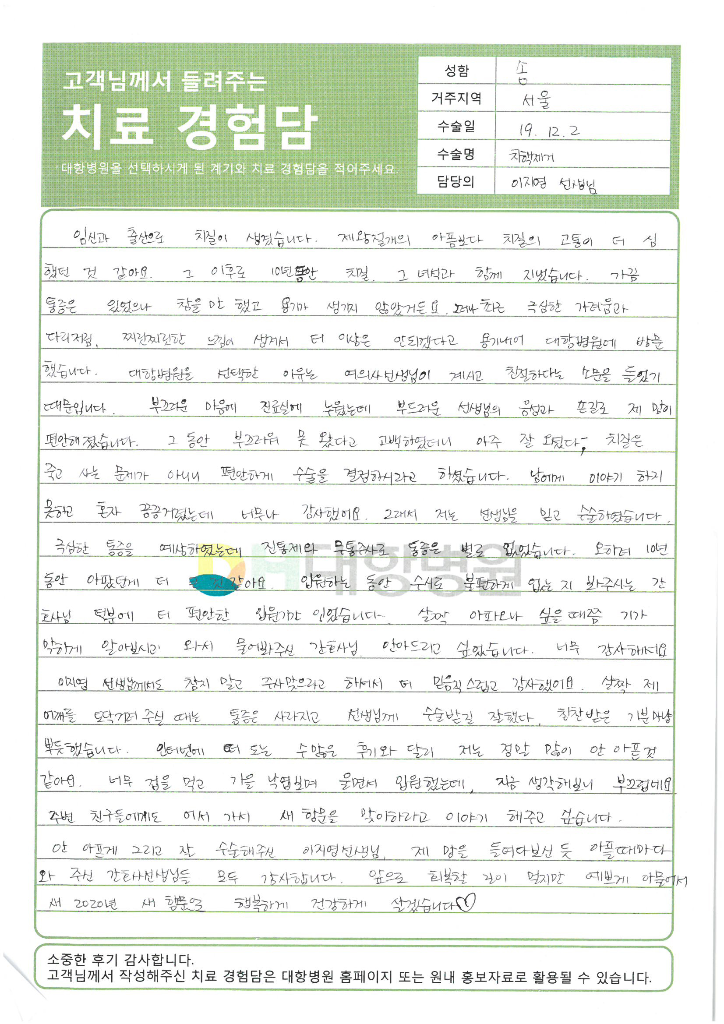 고객님께서 들려주는
치료 경험담
대항병원을 선택하시게 된 계기와 치료 경험담을 적어주세요.
성함 솜
거주지역 서울
수술일 19. 12. 2
수술명 치핵제거
담당의 이지영 선생님
임신과 출산으로 치질이 생겼습니다. 제왕절개의 아픔보다 치질의 고통이 더 심
했던 것 같아요. 그 이후로 10년동안 치질, 그 녀석과 함께 지냈습니다. 가끔
통증은 있었으나 참을만 했고 용기가 생기지 않았거든요. 그러나 극심한 가려움과
다리저림, 찌릿찌릿한 느낌이 생겨서 더 이상은 안되겠다고 용기내어 대항병원에 방문
했습니다. 대항병원을 선택한 이유는 여의사선생님이 계시고 친절하다는 소문을 들었기
때문입니다. 부끄러운 마음에 진료실에 누웠는데 부드러운 선생님의 음성과 손길로 제 맘이
편안해졌습니다. 그 동안 부끄러워 못 왔다고 고백하였더니 아주 잘 오셨다, 치질은
죽고 사는 문제가 아니니 편안하게 수술을 결정하시라고 하셨습니다. 남에게 이야기 하지
못하고 혼자 끙끙거렸는데 너무나 감사했어요. 그래서 저는 선생님을 믿고 수술하였습니다.
극심한 통증을 예상하였는데 진통제와 무통주사로 통증은 별로 없었습니다. 오히려 10년
동안 아팠던게 더 같아요. 입원하는 동안 수시로 불편한게 없는지 봐주시는 간
호사님 덕분에 더 편안한 입원기간이었습니다. 살짝 아파오나 싶을 때쯤 기가
막히게 알아보시고 와서 물어봐주신 간호사님, 안아드리고 싶었습니다. 너무 감사해서요
이지영 선생님께서도 참지 말고 주사맞으라고 하셔서 더 믿음직스럽고 감사했어요. 살짝 제
어깨를 토닥거려 주실 때는 통증은 사라지고 선생님께 수술받길 잘했다, 칭찬받은 기분마냥
뿌듯했습니다. 인터넷에 떠 도는 수많은 후기와 달리 저는 정말 많이 안 아픈것
같아요. 너무 겁을 먹고 가을 낙엽보며 울면서 입원했는데, 지금 생각해보니 부끄럽네요
주변 친구들에게도 어서 가서 새 항문을 맞이하라고 이야기 해주고 싶습니다.
안 아프게 그리고 잘 수술해주신 이지영선생님, 제 맘을 들여다보신 듯 아플때마다
와 주신 간호사선생님들 모두 감사합니다. 앞으로 회복할 길이 멀지만 예쁘게 아물어서
새 2020년 새 항문으로 행복하게 건강하게 살겠습니다♡
대항병원
소중한 후기 감사합니다.
고객님께서 작성해주신 치료 경험담은 대항병원 홈페이지 또는 원내 홍보자료로 활용될 수 있습니다.